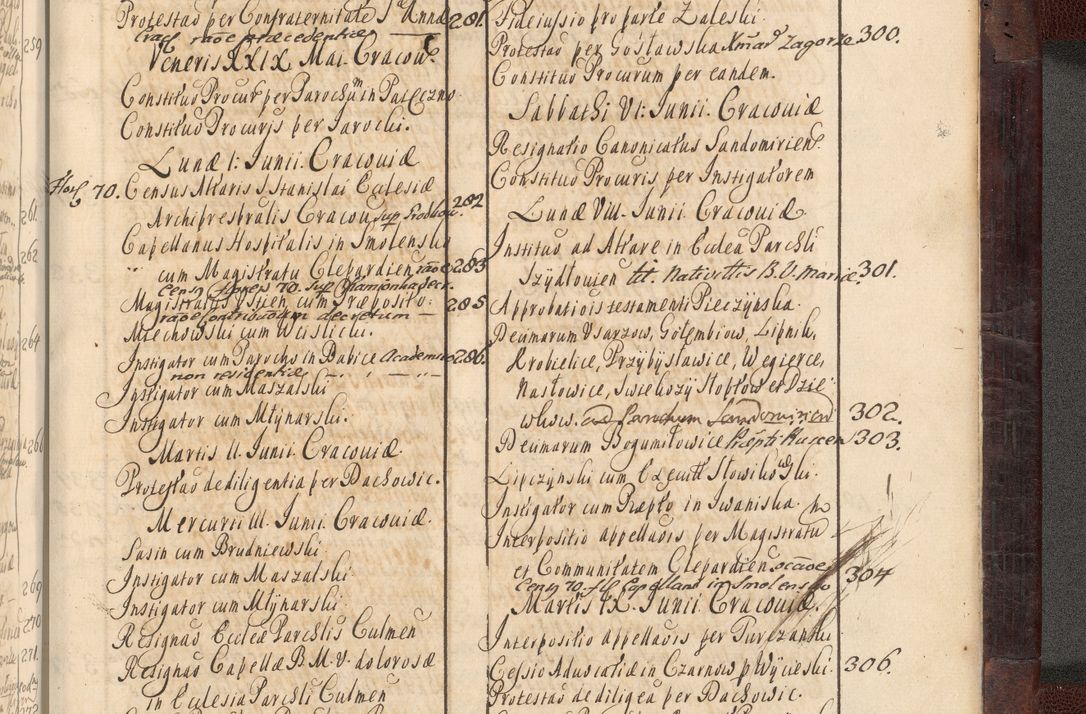 Protestao per Confraternitate S. Annæ 281.
Crac. raõe præcedentiæ
Veneris XXIX Mai. Cracov.
Constituo Procur. per Parochum in Paieczno
Constituo Procuris per Parochi.
Lunæ I. Junii. Cracoviæ
Flor. 70. Census Altaris S. Stanislai Ecclesiæ
Archipresbralis Cracov. sup. 282
Capellanus Hospitalis in Smolensko
" cum Magistratu Clepardien. raõe 283
Census flores 70. sup.
Magistratus cum Præposito: 285
raõe Contribuoũm decretum —
Miechowski cum Wislicki.
Instigator cum Parocho in Babice Academico 286
non residentiæ
Instigator cum Maszalski
Instigator cum Młynarski.
Martis II. Junii. Cracoviæ.
Protestao de diligentia per Dackowic.
Mercurii III. Junii. Cracoviæ.
Sasin cum Brudniewski
Instigator cum Maszalski
Instigator cum Młynarski
Resignao Eccleæ Parchlis Culmen
Resignao Capellæ B. M. V. dolorosæ
in Ecclesia Parchli Culmen
Fideiussio pro parte Zaleski.
Protestao per Gosławska Xmao Zagorze 300.
Constituo Procurum per eandem.
Sabbathi VI. Junii. Cracoviæ
Resignatio Canonicatus Sandomirien.
Constituo Procuris per Instigatorem
Lunæ VIII. Junii Cracoviæ.
Instituo ad Altare in Eccleа Parchli
Szydłovien tit. Nativttis B. V. Mariæ 301.
Approbatiois testamenti Pieczyńska.
Decimarum Usarzow, Gołembiow, Lipnik,
Krobielice, Przybysławice, Węgierce,
Nasławice, Swiekszy Stopłow et Dzie
wkow. ad Parochum Sandomirien 302.
Decimarum Bogumiłowice 303.
Lipczynski cum Słowikowski.
Instigator cum Præpto in Iwaniska.
Interpositio appellaois per Magistratu
et Communitatem Clepardien. occaõe
Census 70. fl. Capelland in Smolensko 304
Martis IX. Junii Cracoviæ.
Interpositio appellaois per Turczanski
Cessio Advocatiæ in Czarnow p Wycieski 306.
Protestao de diligea per Dackowic.
259
261
262
264
266
269
270
271.
272